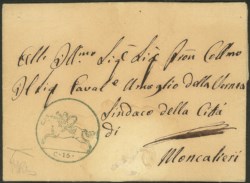 All' Ill.mo Sig.r Sig. Pron Collmo
Il Sig. Caval.e Amoglio della Vernea
Sindaco della Città
di
Moncalieri
C. 15.